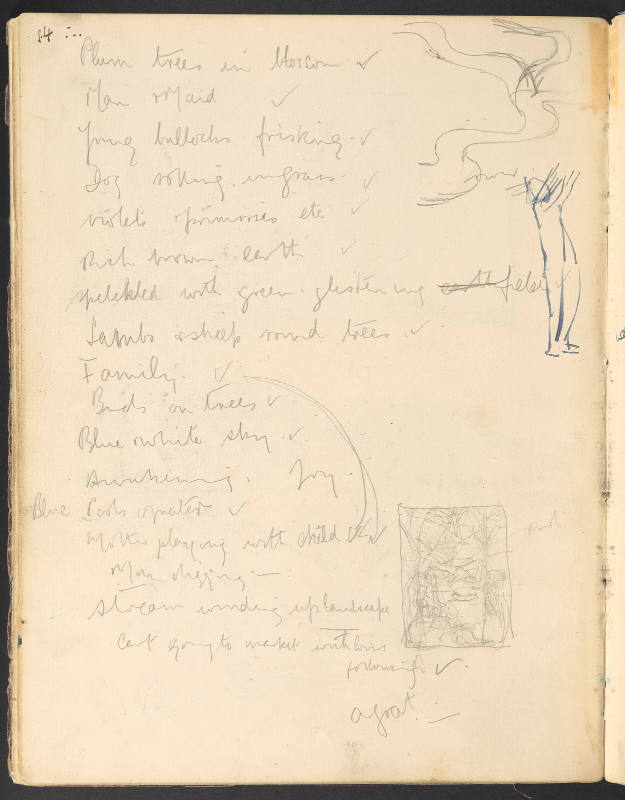 84
Plum trees in blossom
Man & Maid
Young bullocks frisking.
Dog rolling in grass.
river
violets & primroses etc
Rich brown earth
speckled with green. glistening earth fields
Lambs & sheep round trees
Family.
Buds on trees
Blue & white sky
Awakening. Joy.
Blue Pools of water
Mother playing with child
Man digging —
stream winding up landscape
Cart going to market with
following
a goat. —